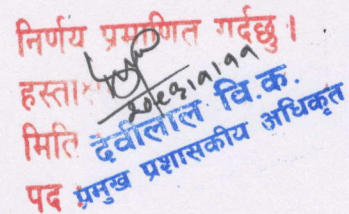 निर्णय प्रमाणित गर्दछु ।
हस्ता
मिति देवीलाल वि.क.
पद प्रमुख प्रशासकीय अधिकृत